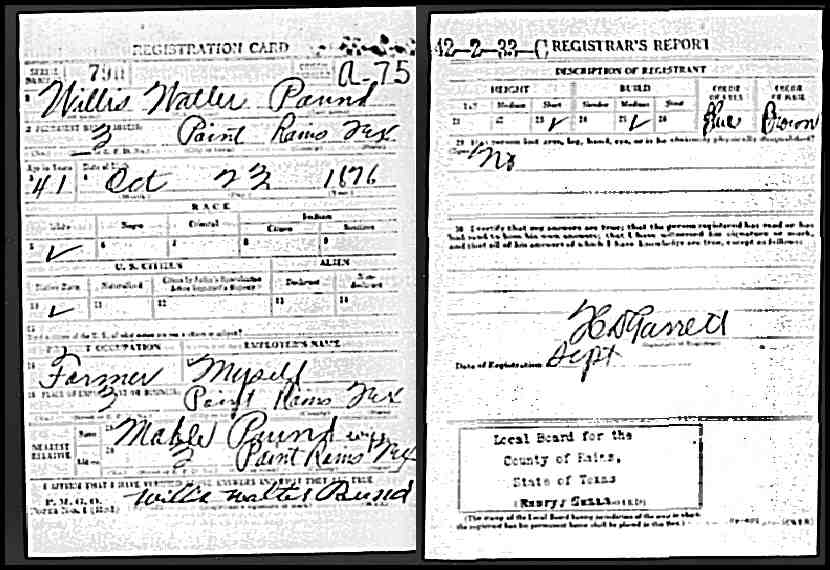 REGISTRATION CARD
SERIAL NUMBER 798
ORDER NUMBER A-75
1 Willis Walter Pound
2 PERMANENT HOME ADDRESS:
3 Point Rains Tex
Age in Years
Date of Birth
41 Oct 22 1876
RACE
White
Negro
Oriental
Indian
Citizen
Noncitizen
5 ✓ 6 7 8 9
U. S. CITIZEN
ALIEN
Native Born
Naturalized
Citizen by Father's Naturalization
Declarant
Non-declarant
10 ✓ 11 12 13 14
15
PRESENT OCCUPATION
EMPLOYER'S NAME
Farmer Myself
18 PLACE OF EMPLOYMENT OR BUSINESS:
3 Point Rains Tex
NEAREST RELATIVE
Name Mable Pound wife
Address 3 Point Rains Tex
I AFFIRM THAT I HAVE VERIFIED ABOVE ANSWERS AND THAT THEY ARE TRUE
P. M. G. O.
Form No. 1 (Red)
Willis Walter
42-2-33-C REGISTRAR'S REPORT
DESCRIPTION OF REGISTRANT
HEIGHT
BUILD
COLOR OF EYES
COLOR OF HAIR
Tall Medium Short Slender Medium Stout
21 22 23 ✓ 24 25 ✓ 26 Blue Brown
29 Has person lost arm, leg, hand, eye, or is he obviously physically disqualified?
No
30 I certify that my answers are true; that the person registered has read or has
had read to him his own answers; that I have witnessed his signature or mark,
and that all of his answers of which I have knowledge are true, except as follows:
H D Garrett
Date of Registration Sept
Local Board for the
County of Rains,
State of Texas
(The stamp of the Local Board having jurisdiction of the area in which
the registrant has his permanent home shall be placed in this box.)
(OVER)